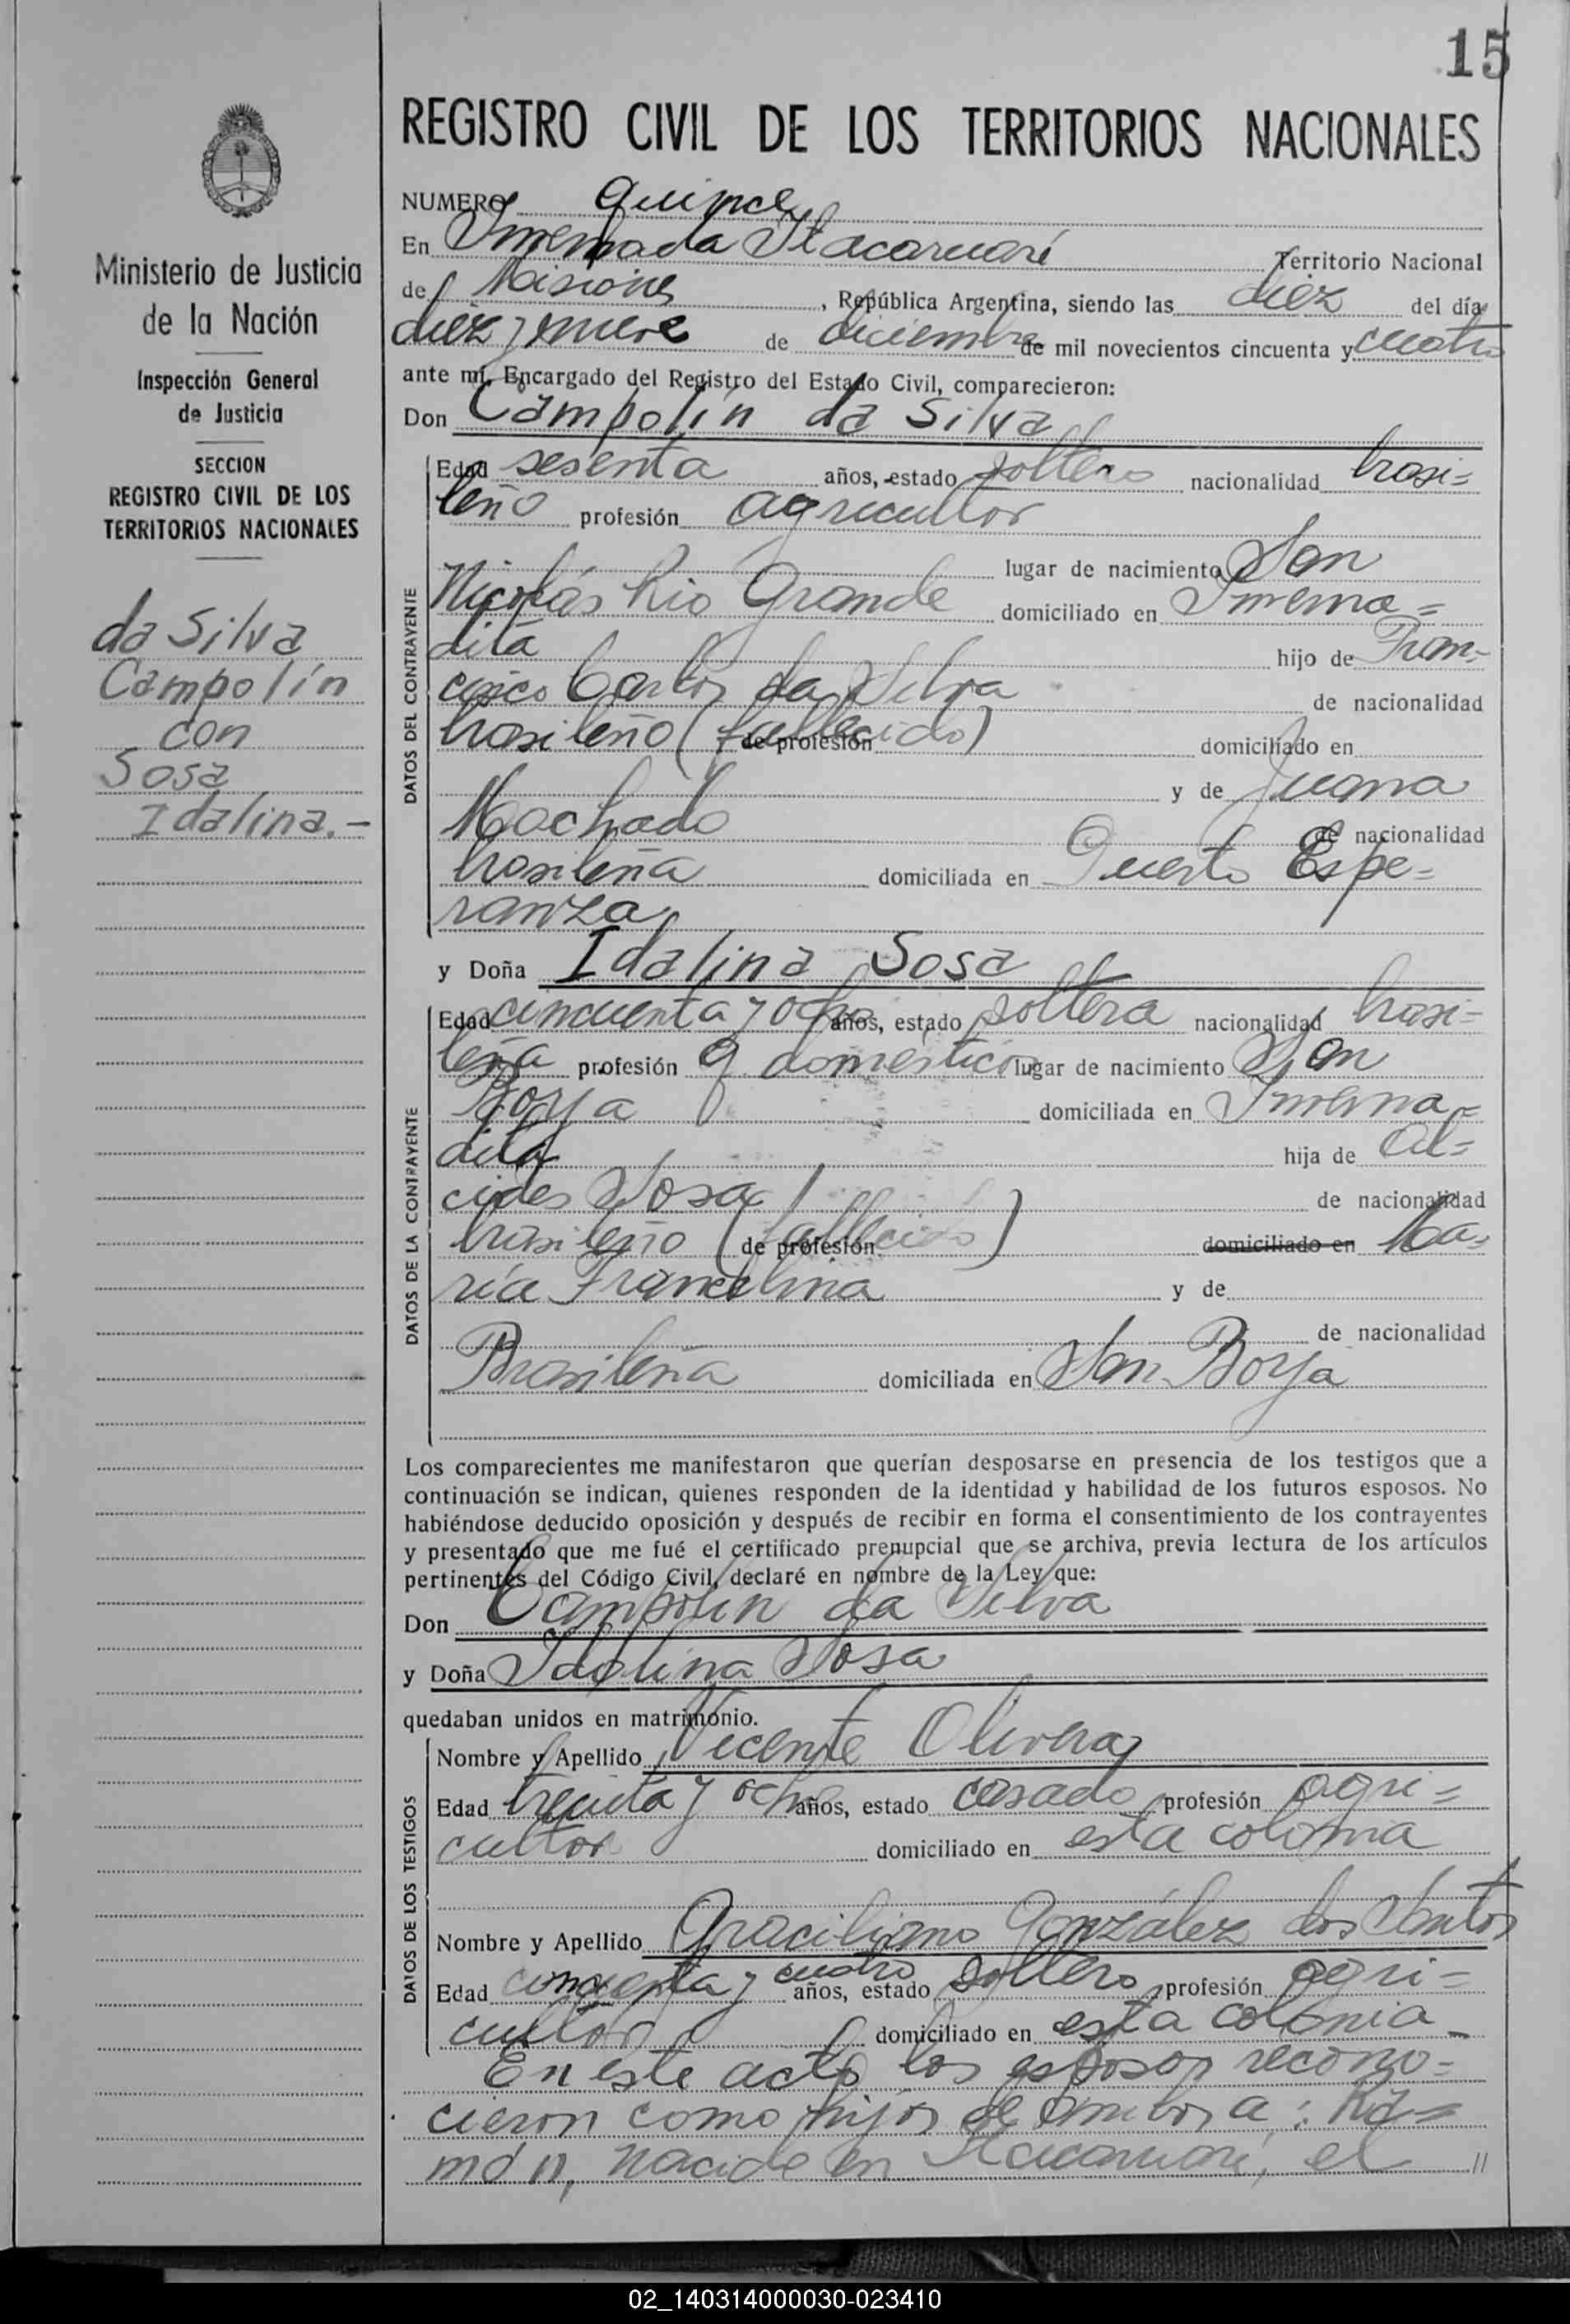 15
REGISTRO CIVIL DE LOS TERRITORIOS NACIONALES
NUMERO quince
En Invernada Itacaruaré Territorio Nacional
de Misiones, República Argentina, siendo las diez del día
diez y nueve de diciembre de mil novecientos cincuenta y cuatro
ante mí, Encargado del Registro del Estado Civil, comparecieron:
Don Campolín da Silva
DATOS DEL CONTRAYENTE
Edad sesenta años, estado soltero nacionalidad brasi=
leño profesión agricultor
lugar de nacimiento San
Nicolás Rio Grande domiciliado en Inverna=
dita hijo de Fran=
cisco Carlos da Silva de nacionalidad
brasileño (fallecido) de profesión domiciliado en
y de Juana
Machado de nacionalidad
brasileña domiciliada en Puerto Espe=
ranza
y Doña Idalina Sosa
DATOS DE LA CONTRAYENTE
Edad cincuenta y ocho años, estado soltera nacionalidad brasi=
leña profesión q. domésticos lugar de nacimiento San
Borja domiciliada en Inverna=
dita hija de Al=
cides Sosa de nacionalidad
brasileño (fallecido) de profesión domiciliado en Ma=
ría Francelina y de
de nacionalidad
Brasileña domiciliada en San Borja
Los comparecientes me manifestaron que querían desposarse en presencia de los testigos que a
continuación se indican, quienes responden de la identidad y habilidad de los futuros esposos. No
habiéndose deducido oposición y después de recibir en forma el consentimiento de los contrayentes
y presentado que me fué el certificado prenupcial que se archiva, previa lectura de los artículos
pertinentes del Código Civil, declaré en nombre de la Ley que:
Don Campolín da Silva
y Doña Idalina Sosa
quedaban unidos en matrimonio.
DATOS DE LOS TESTIGOS
Nombre y Apellido Vicente Olivera
Edad treinta y ocho años, estado casado profesión agri=
cultor domiciliado en esta colonia
Nombre y Apellido Graciliano González dos Santos
Edad cincuenta y cuatro años, estado soltero profesión agri=
cultor domiciliado en esta colonia
En este acto los esposos recono=
cieron como hijos de ambos a: Ra=
món, nacido en Itacaruaré, el //
Ministerio de Justicia
de la Nación
Inspección General
de Justicia
SECCION
REGISTRO CIVIL DE LOS
TERRITORIOS NACIONALES
da Silva
Campolín
con
Sosa
Idalina.-
02_140314000030-023410